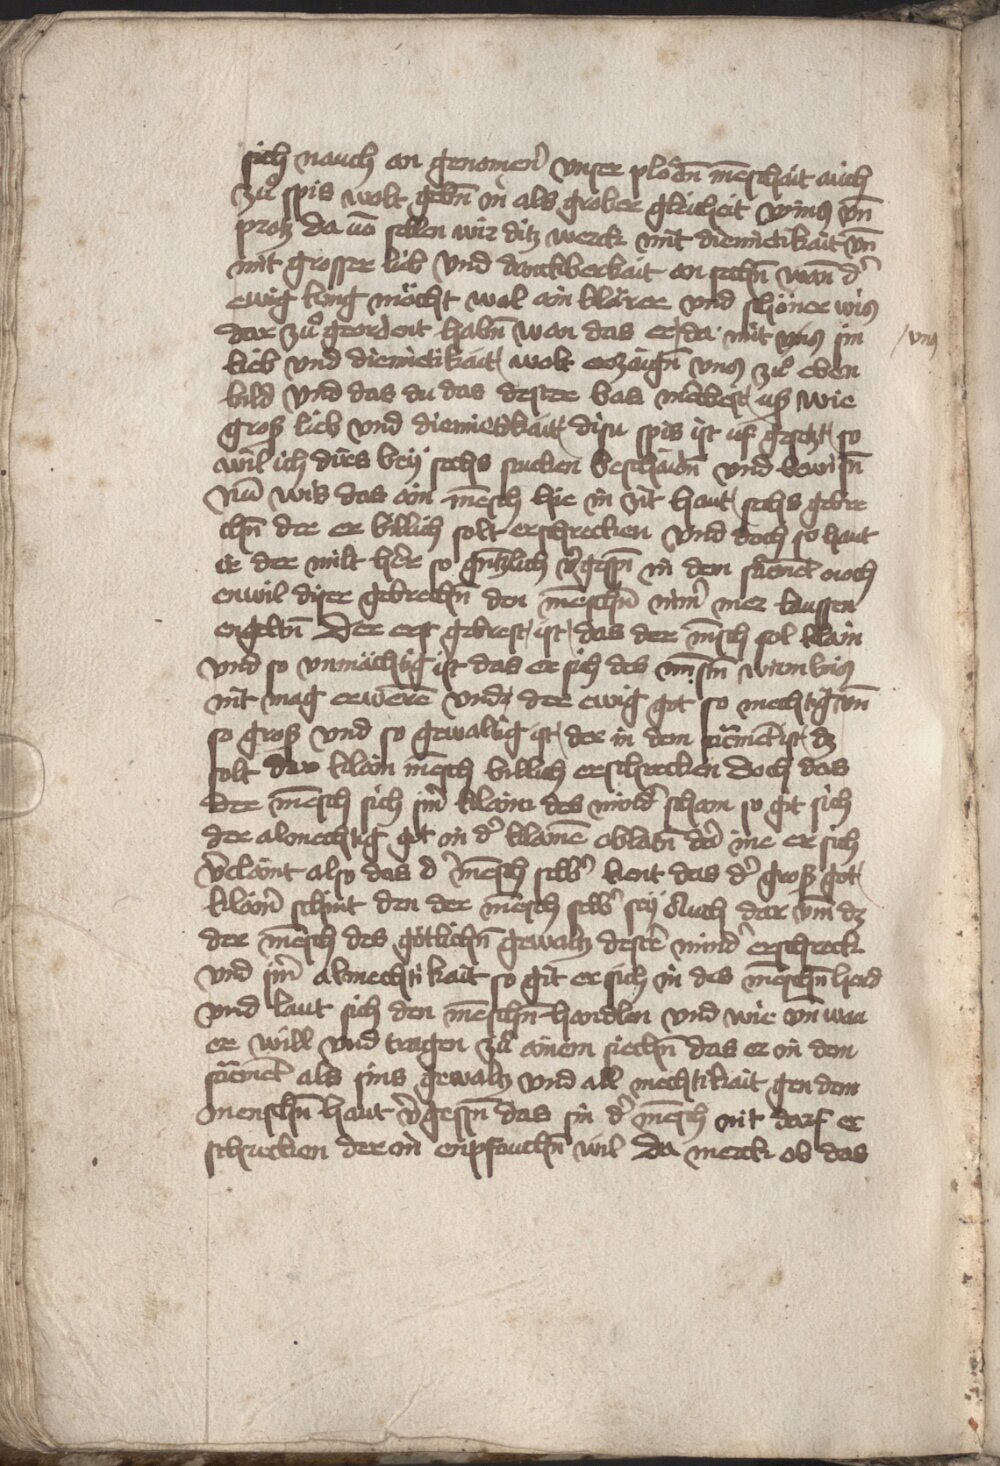 sich nauch an genomen̄ vnser plödn̄ mēschait auch
zuͦ spis wolt gebn̄ in als grober glicheit wins vn̄
protz da vō sellen wir ditz werck mit diemietikait vn̄
mit grosser lieb vnd danckberkait an sechn̄ wan̄ d̄
ewig king möcht wol ain klärer vnd schöner wis
dar zuͦ geordent habn̄ wan das er da mit vns sin / vns
lieb vnd diemietikait wolt erzaign̄ vns zuͦ eben
bild vnd das du das dester bas merkest uß wie
groß lieb vnd diemietikait disu spis ist uf gesetzt so
wil ich dirs bey sechs stucken beschaidn̄ vnd bewisn̄
Nū wis das ain mēsch hie in zit haut sechs gebre
chn̄ der er billich solt erschrecken vnd doch so haut
ir der milt herr so gūtzlich v̄gessn̄ in dem sac̄mēt noch
enwil diser gebrechn̄ den mēschn̄ nim̄ mer laussen
engeltn̄ Der erst gebrest ist das der mēsch sol klain
vnd so vnmächtig ist das er sich des minstn̄ wirmlins
nit mag erwerē vnd der ewig got so mechtig vn̄
so groß vnd so gewaltig ist der in dem sac̄mēt ist dz
solt den klain mēsch billich erschrecken Doch das
der mēsch sich sin̄ klaini des mind̄ scham so git sich
der almechtig got in d̄ klainē oblatn̄ dar ine er sich
v̄claint also das d̄ mēsch selb̄ kent das d̄ groß got
klain̄ schint den der mēsch selb̄ sey Auch dar vm̄ dz
der mēsch des götlichn̄ gewaltz dest̄ mind̄ erschreck
vnd sin̄ almechtikait so git er sich in des mēschn̄ hend
vnd laut sich den mēschn̄ handlen vnd wie vn̄ waa
er will vnd tragen zuͦ ainem siechn̄ das er in dem
sac̄mēt als sins gewaltz vnd all mechtikait gen dem
menschn̄ haut v̄gessn̄ das sin d̄ mēsch nit darf er
schrecken der in enpfauchn̄ wil Da merck ob das